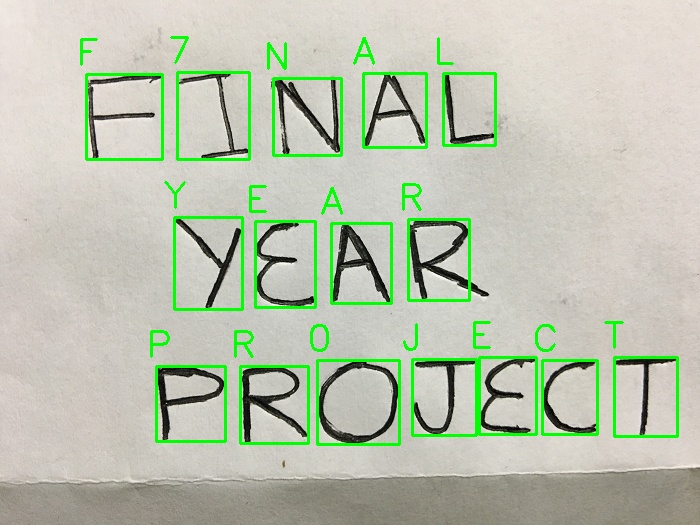 F 7 N A L
FINAL
Y E A R
YEAR
P R O J E C T
PROJECT